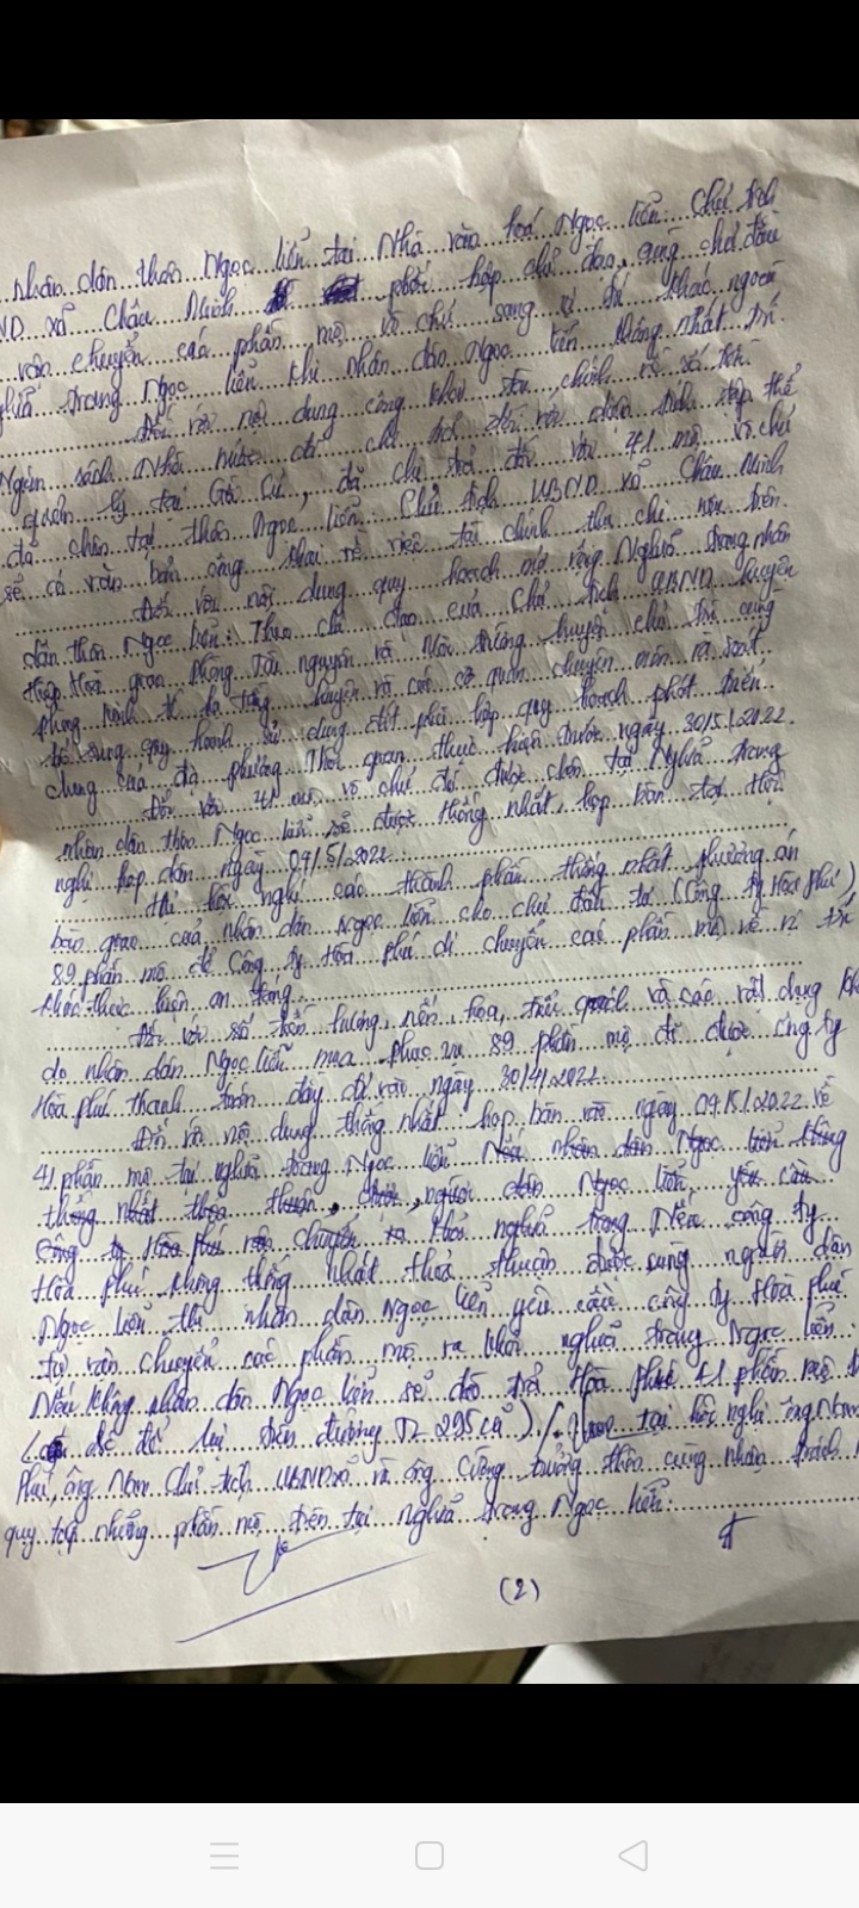 nhân dân thôn Ngọc liễn tại Nhà văn hoá Ngọc liễn. Chủ tịch
ND xã Châu Minh phối hợp chỉ đạo, cùng chủ đầu
vận chuyển các phần mộ vô chủ sang vị trí khác ngoài
nghĩa trang Ngọc liễn khi nhân dân Ngọc liễn thống nhất trí.
Đối với nội dung công khai tài chính về số tiền
Ngân sách Nhà nước đã chi trả đối với tập thể
quản lý tại Gò Cú, đã chi trả đối với 41 mộ vô chủ
đã chôn tại thôn Ngọc liễn. Chủ tịch UBND xã Châu Minh
sẽ có văn bản công khai về việc tài chính thu chi nêu trên.
Đối với nội dung quy hoạch mở rộng Nghĩa trang nhân
dân thôn Ngọc liễn: Theo chỉ đạo của Chủ tịch UBND huyện
Hiệp Hoà giao Phòng Tài nguyên và Môi trường huyện chủ trì cùng
phòng kinh tế hạ tầng huyện và các cơ quan chuyên môn rà soát
bổ sung quy hoạch sử dụng đất phù hợp quy hoạch phát triển
chung của địa phương. Thời gian thực hiện trước ngày 30/5/2022.
Đối với 41 mộ vô chủ đã được chôn tại Nghĩa trang
nhân dân thôn Ngọc liễn sẽ được thống nhất, họp bàn tại Hội
nghị họp dân ngày 09/5/2022.
Hội nghị các thành phần thống nhất phương án
bàn giao của nhân dân Ngọc liễn cho chủ đầu tư (Công ty Hòa Phú)
89 phần mộ để Công ty Hòa phú di chuyển các phần mộ về vị trí
khác thực hiện an táng.
Đối với số tiền hương, nến, hoa, trái quả và các vật dụng
do nhân dân Ngọc liễn mua phục vụ 89 phần mộ được công ty
Hòa phú thanh toán đầy đủ vào ngày 30/4/2022.
Đối với nội dung thống nhất họp bàn vào ngày 09/5/2022 về
41 phần mộ tại nghĩa trang Ngọc liễn Nếu nhân dân Ngọc liễn không
thống nhất thỏa thuận, được, người dân Ngọc liễn yêu cầu
Công ty Hòa phú vận chuyển ra khỏi nghĩa trang Nếu công ty
Hòa phú không thống nhất thoả thuận được cùng người dân
Ngọc liễn thì nhân dân Ngọc liễn yêu cầu công ty Hòa phú
tự vận chuyển các phần mộ ra khỏi nghĩa trang Ngọc liễn.
Nếu không nhân dân Ngọc liễn sẽ đào trả Hòa phú 41 phần mộ
để lại trên đường 295 cũ)./. tại hội nghị ông Nam
Phú, ông Nam Chủ tịch UBND xã và ông Cường trưởng thôn cùng nhận trách
quy tập những phần mộ trên tại nghĩa trang Ngọc liễn.
(2)